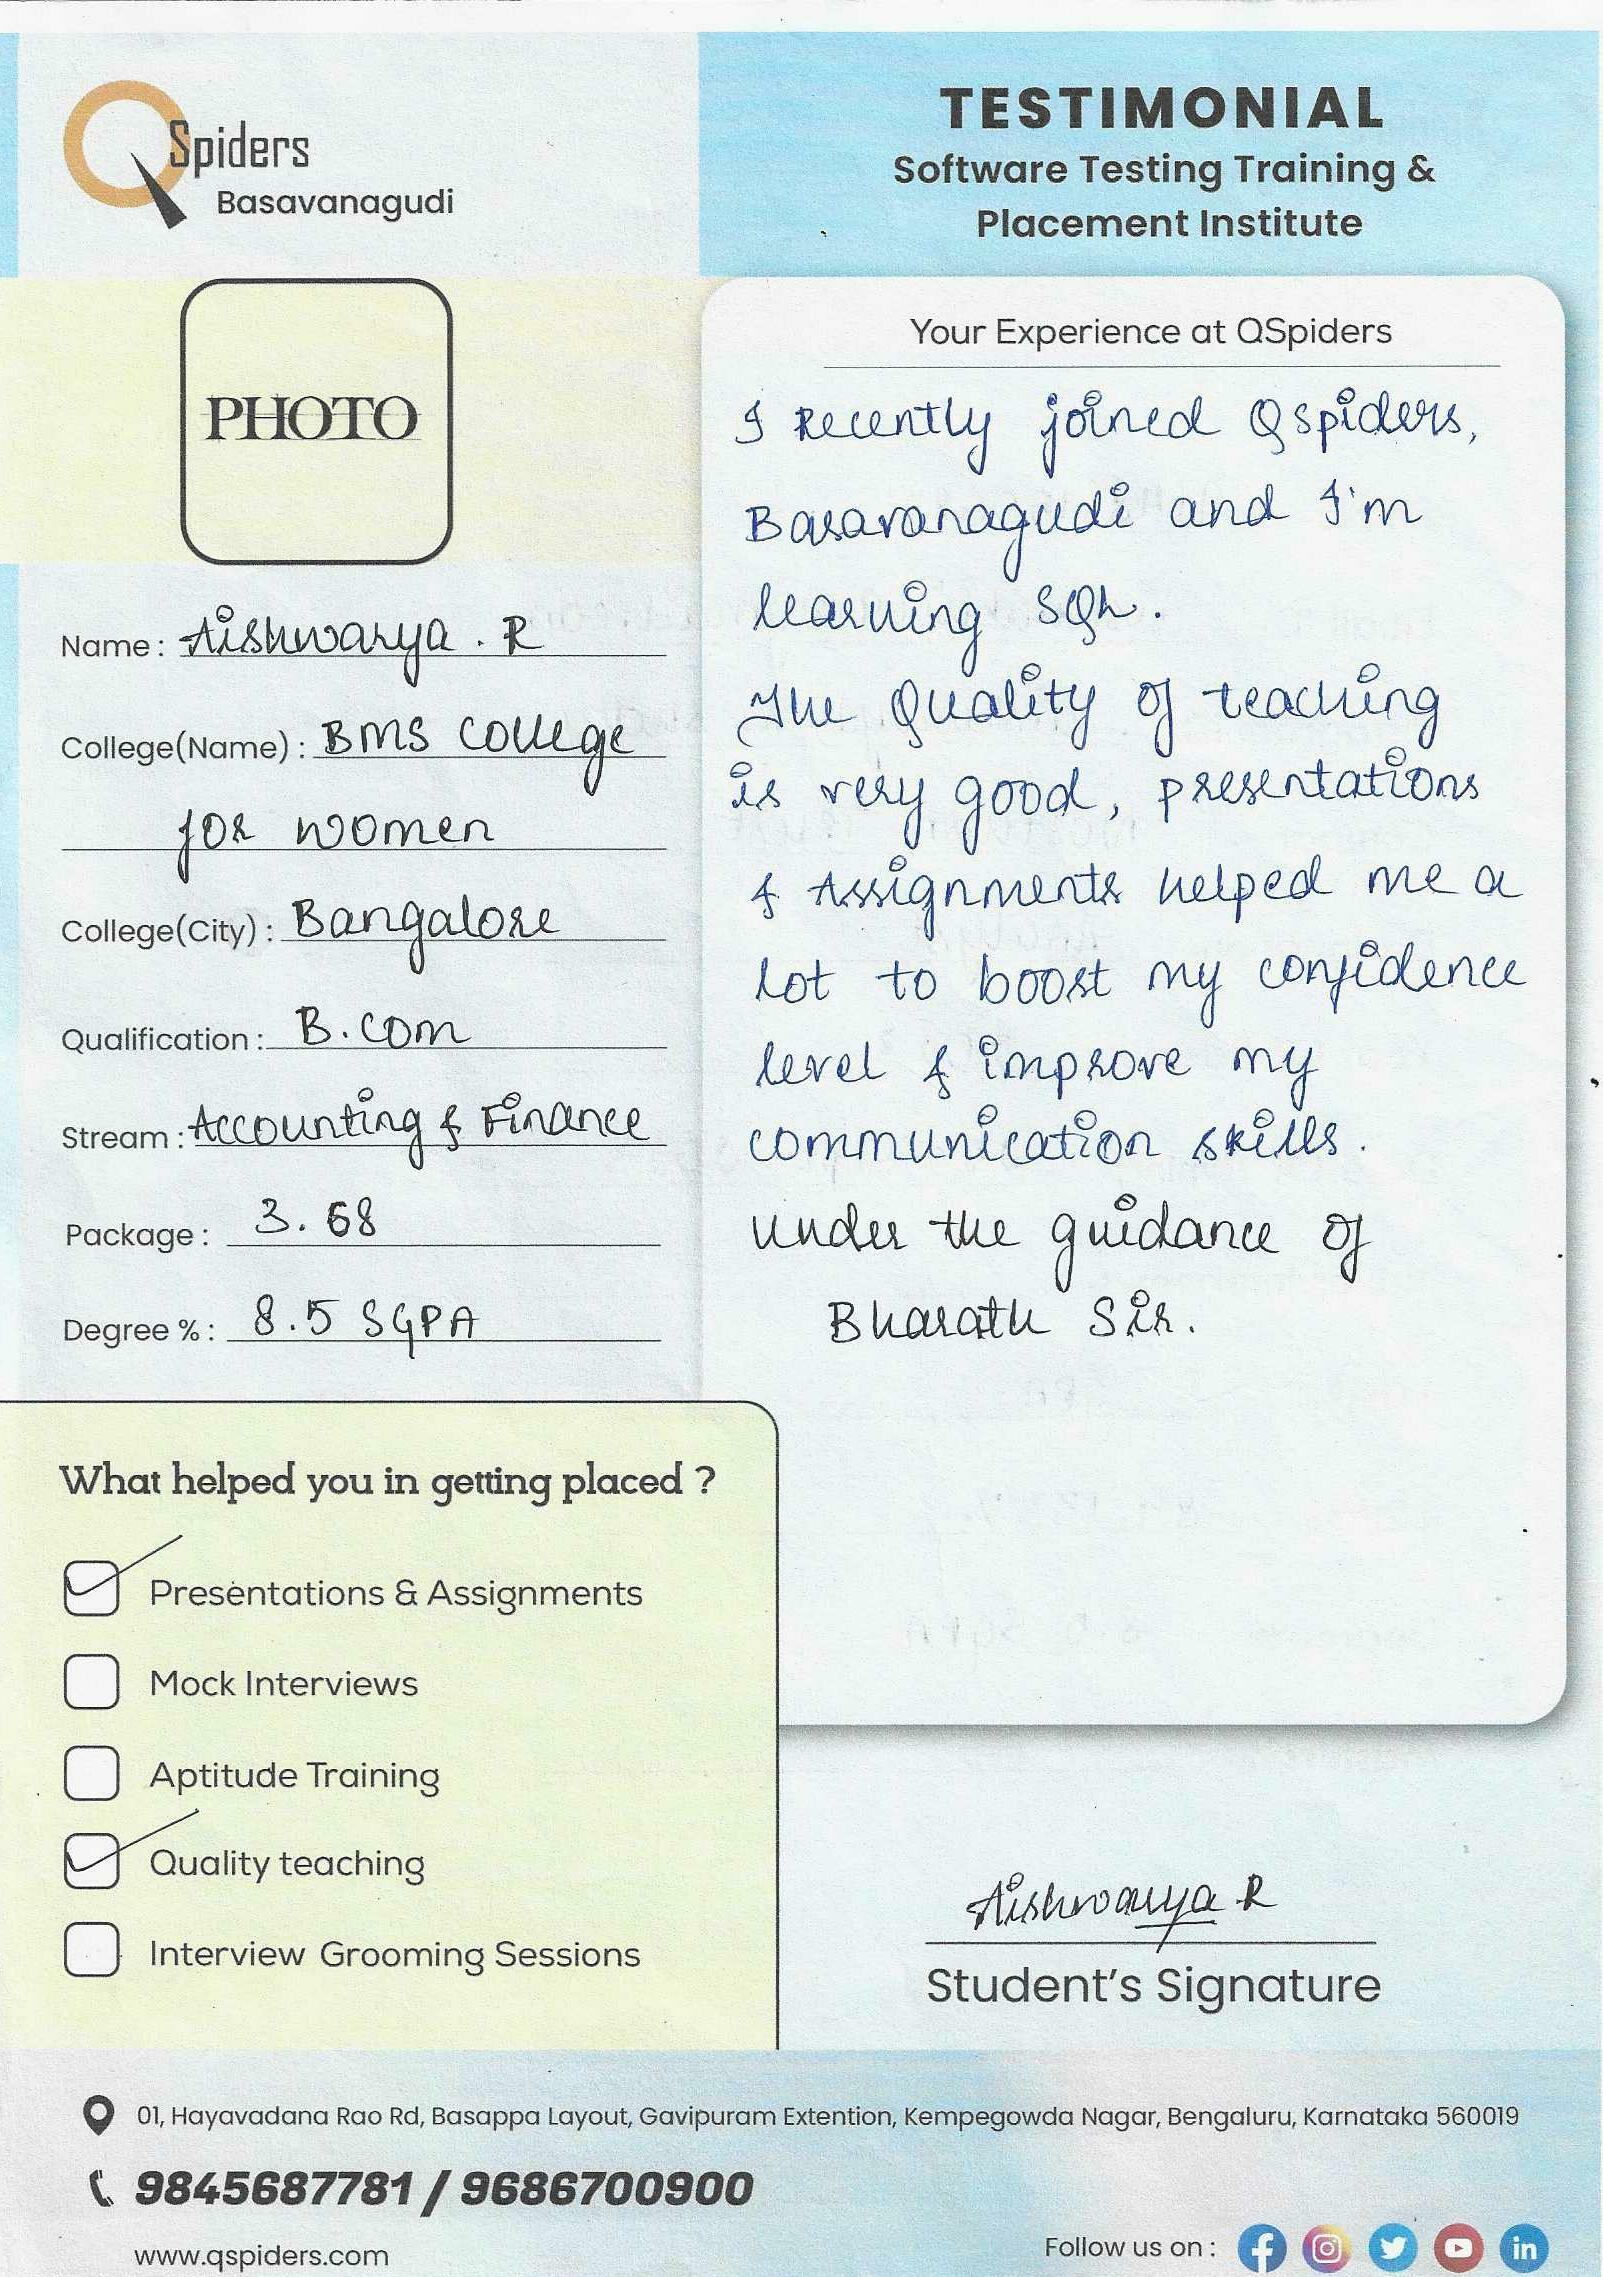 QSpiders
Basavanagudi
TESTIMONIAL
Software Testing Training &
Placement Institute
PHOTO
Name : Aishwarya . R
College(Name) : BMS College
for women
College(City) : Bangalore
Qualification : B.com
Stream : Accounting & Finance
Package : 3.68
Degree % : 8.5 SGPA
Your Experience at QSpiders
I Recently joined Qspiders,
Basavanagudi and I'm
learning SQL.
The Quality of teaching
is very good, presentations
& Assignments helped me a
lot to boost my confidence
level & improve my
communication skills.
under the guidance of
Bharath Sir.
What helped you in getting placed ?
Presentations & Assignments
Mock Interviews
Aptitude Training
Quality teaching
Interview Grooming Sessions
Aishwarya R
Student's Signature
01, Hayavadana Rao Rd, Basappa Layout, Gavipuram Extention, Kempegowda Nagar, Bengaluru, Karnataka 560019
9845687781 / 9686700900
www.qspiders.com
Follow us on :